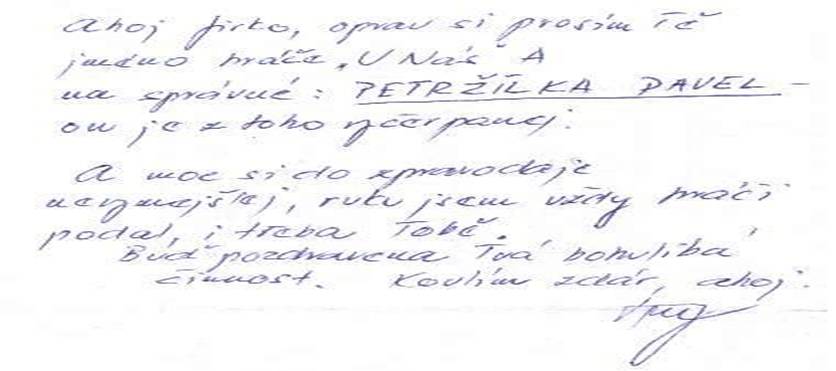 Ahoj Jirko, oprav si prosím Tě
jméno hráče „U Nás" A
na správné: PETRŽÍLKA PAVEL –
on je z toho vyčerpanej.
A moc si do zpravodaje
nevymejšlej, ruku jsem vždy hráči
podal, i třeba Tobě.
Buď pozdravena Tvá bohulibá
činnost. Koulím zdár, ahoj.